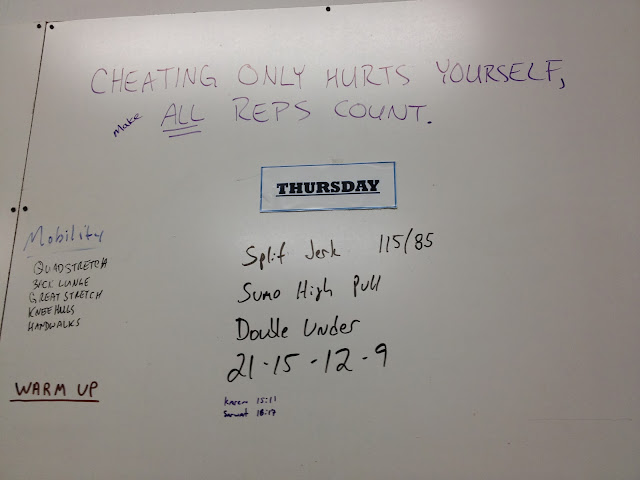 CHEATING ONLY HURTS YOURSELF,
Make ALL REPS COUNT.
THURSDAY
Mobility
QUAD STRETCH
BACK LUNGE
GREAT STRETCH
KNEE HUGS
HANDWALKS
WARM UP
Split Jerk 115/85
Sumo High Pull
Double Under
21-15-12-9
Karen 15:11
18:17